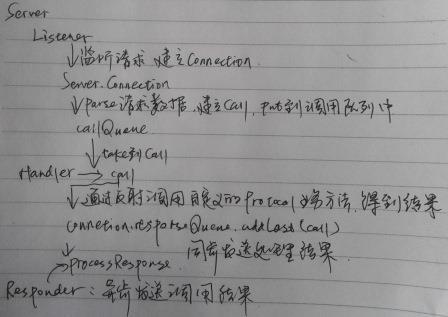 Server
Listener
↓ 监听请求, 建立Connection.
Server.Connection
↓ Parse请求数据, 建立Call, put到调用队列中
callQueue
↓ take到Call
Handler → call
↓ 通过反射调用自定义的Protocol对象方法, 得到结果
connection.responseQueue.addLast(call)
↓ 同步发送处理结果.
→ processResponse
Responder: 异步发送调用结果